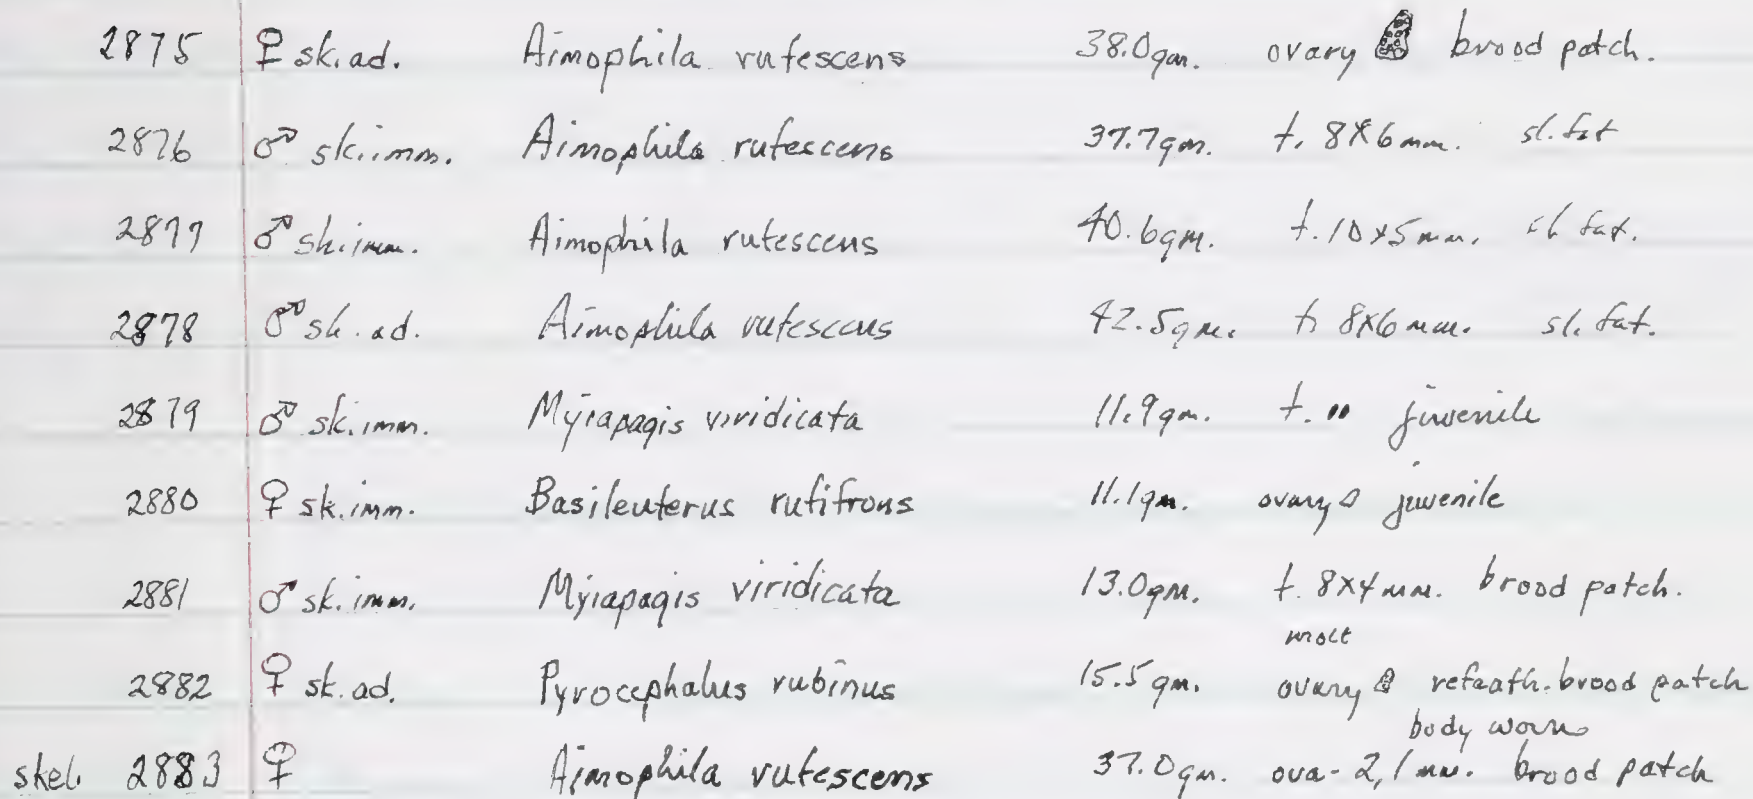 2875 ♀ sk. ad. Aimophila rufescens 38.0gm. ovary brood patch.
2876 ♂ sk. imm. Aimophila rufescens 37.7gm. t. 8x6mm. sl. fat
2877 ♂ sk. imm. Aimophila rufescens 40.6gm. t. 10x5mm. sl. fat.
2878 ♂ sk. ad. Aimophila rufescens 42.5gm. t. 8x6mm. sl. fat.
2879 ♂ sk. imm. Myiapagis viridicata 11.9gm. t. juvenile
2880 ♀ sk. imm. Basileuterus rufifrons 11.1gm. ovary juvenile
2881 ♂ sk. imm. Myiapagis viridicata 13.0gm. t. 8x4mm. brood patch.
molt
2882 ♀ sk. ad. Pyrocephalus rubinus 15.5gm. ovary refeath. brood patch
body worn
skel. 2883 ♀ Aimophila rufescens 37.0gm. ova-2,1mm. brood patch